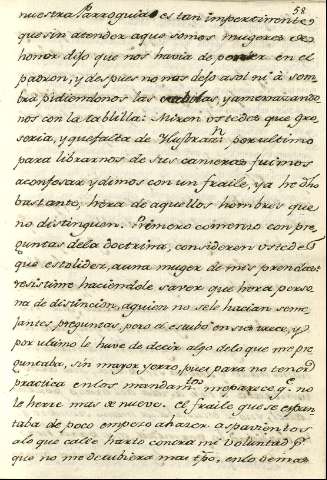 58
nuestra Parroquia es tan impertinente
que sin atender a que somos mugeres de
honor dijo que nos havia de poner en el
padron, y despues no nos dejo a sol ni à som
bra pidiendonos las cedulas, y amenazando
nos con la tablilla: Miren ustedes que gro
seria, y que falta de Ilustraon por ultimo
para librarnos de sus canseras fuimos
a confesar y dimos con un fraile, ya he dho
bastante, hera de aquellos hombres que
no distinguen. Primero comenzo con pre
guntas de la doctrina, consideren ustedes
que estolidez, a una muger de mis prendas
resistime haciendole saver que hera perso
na de distincion, a quien no se le hacian seme
jantes preguntas, pero el estubo en sus trece, y
por ultimo le huve de decir algo de lo que me pre
guntaba, sin mayor yerro, pues para no tener
practica en los mandamtos me parece qe. no
le herre mas de nueve. el fraile que se espan
taba de poco empezo a hazer aspavientos
a lo que calle harto contra mi voluntad pr.
que no me detubiera mas tpo. en lo demas